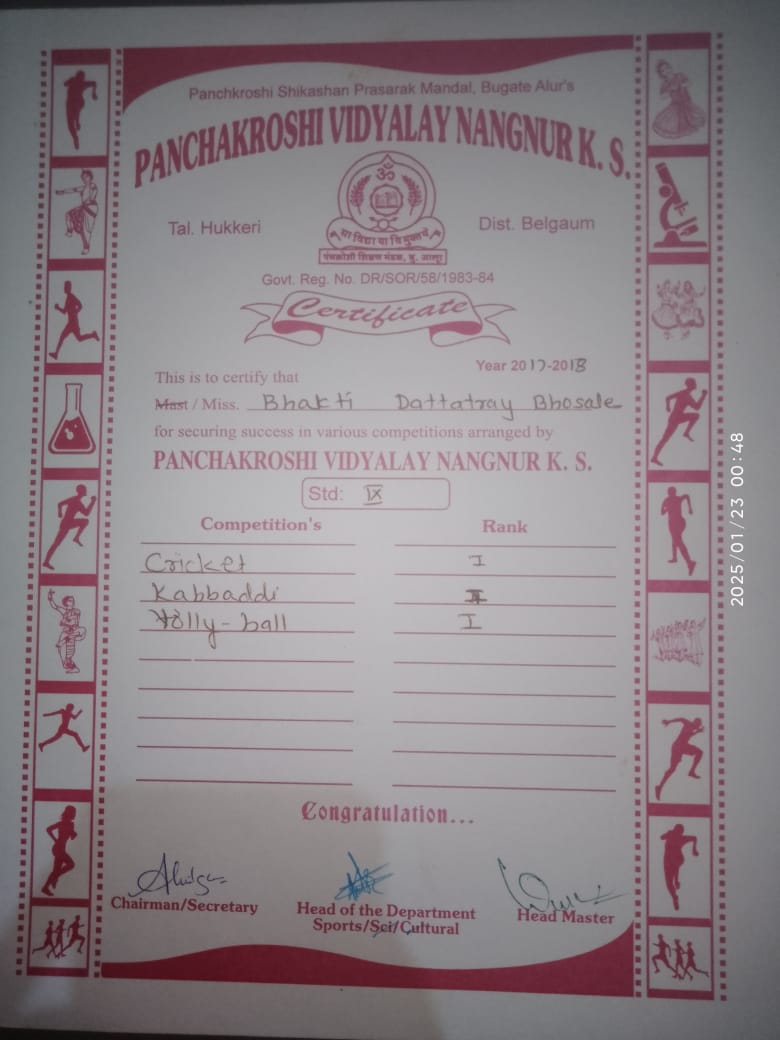 Panchkroshi Shikashan Prasarak Mandal, Bugate Alur's
PANCHAKROSHI VIDYALAY NANGNUR K. S.
Tal. Hukkeri
Dist. Belgaum
ॐ
या विद्या या विमुक्तये
पंचक्रोशी शिक्षण मंडळ, बु. आलूर
Govt. Reg. No. DR/SOR/58/1983-84
Certificate
Year 2017-2018
This is to certify that
Mast / Miss. Bhakti Dattatray Bhosale
for securing success in various competitions arranged by
PANCHAKROSHI VIDYALAY NANGNUR K. S.
Std: IX
Competition's Rank
Cricket I
Kabbaddi
Volly-ball I
Congratulation...
Chairman/Secretary
Head of the Department
Sports/Sci/Cultural
Head Master
2025/01/23 00:48